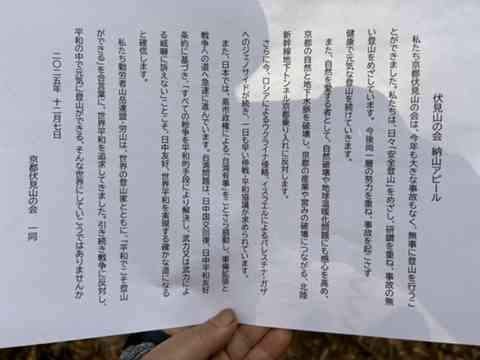 伏見山の会 納山アピール
私たち京都伏見山の会は、今年も大きな事故もなく、無事に登山を行うこ
とができました。私たちは、日々「安全登山」をめざし、研鑽を重ね、事故の無
い登山をめざしています。今後尚一層の努力を重ね、事故を起こさず
健康で元気な登山を続けていきます。
また、自然を愛する者として、自然破壊や地球温暖化問題にも関心を高め、
京都の自然と地下水脈を破壊し、京都の産業や営みの破壊につながる、北陸
新幹線地下トンネル京都乗り入れに反対します。
さらに今、ロシアによるウクライナ侵略、イスラエルによるパレスチナ・ガザ
へのジェノサイドが続き、一日も早い停戦・平和協議が求められています。
また、日本では、高市政権による「台湾有事」をことさら扇動し、軍備拡張と
戦争への道へ急速に進んでいます。台湾問題は、日中国交回復、日中平和友好
条約に基づき、「すべての紛争を平和的手段により解決し、武力又は武力によ
る威嚇に訴えない」ことこそ、日中友好、世界平和を実現する確かな道になる
と確信します。
私たち勤労者山岳連盟・労山は、世界の登山家とともに、「平和でこそ登山
ができる」を合言葉に、世界平和を追求してきました。引き続き戦争に反対し、
平和の中で元気に登山ができる、そんな世界にしていこうではありませんか
二〇二五年 十二月七日
京都伏見山の会 一同